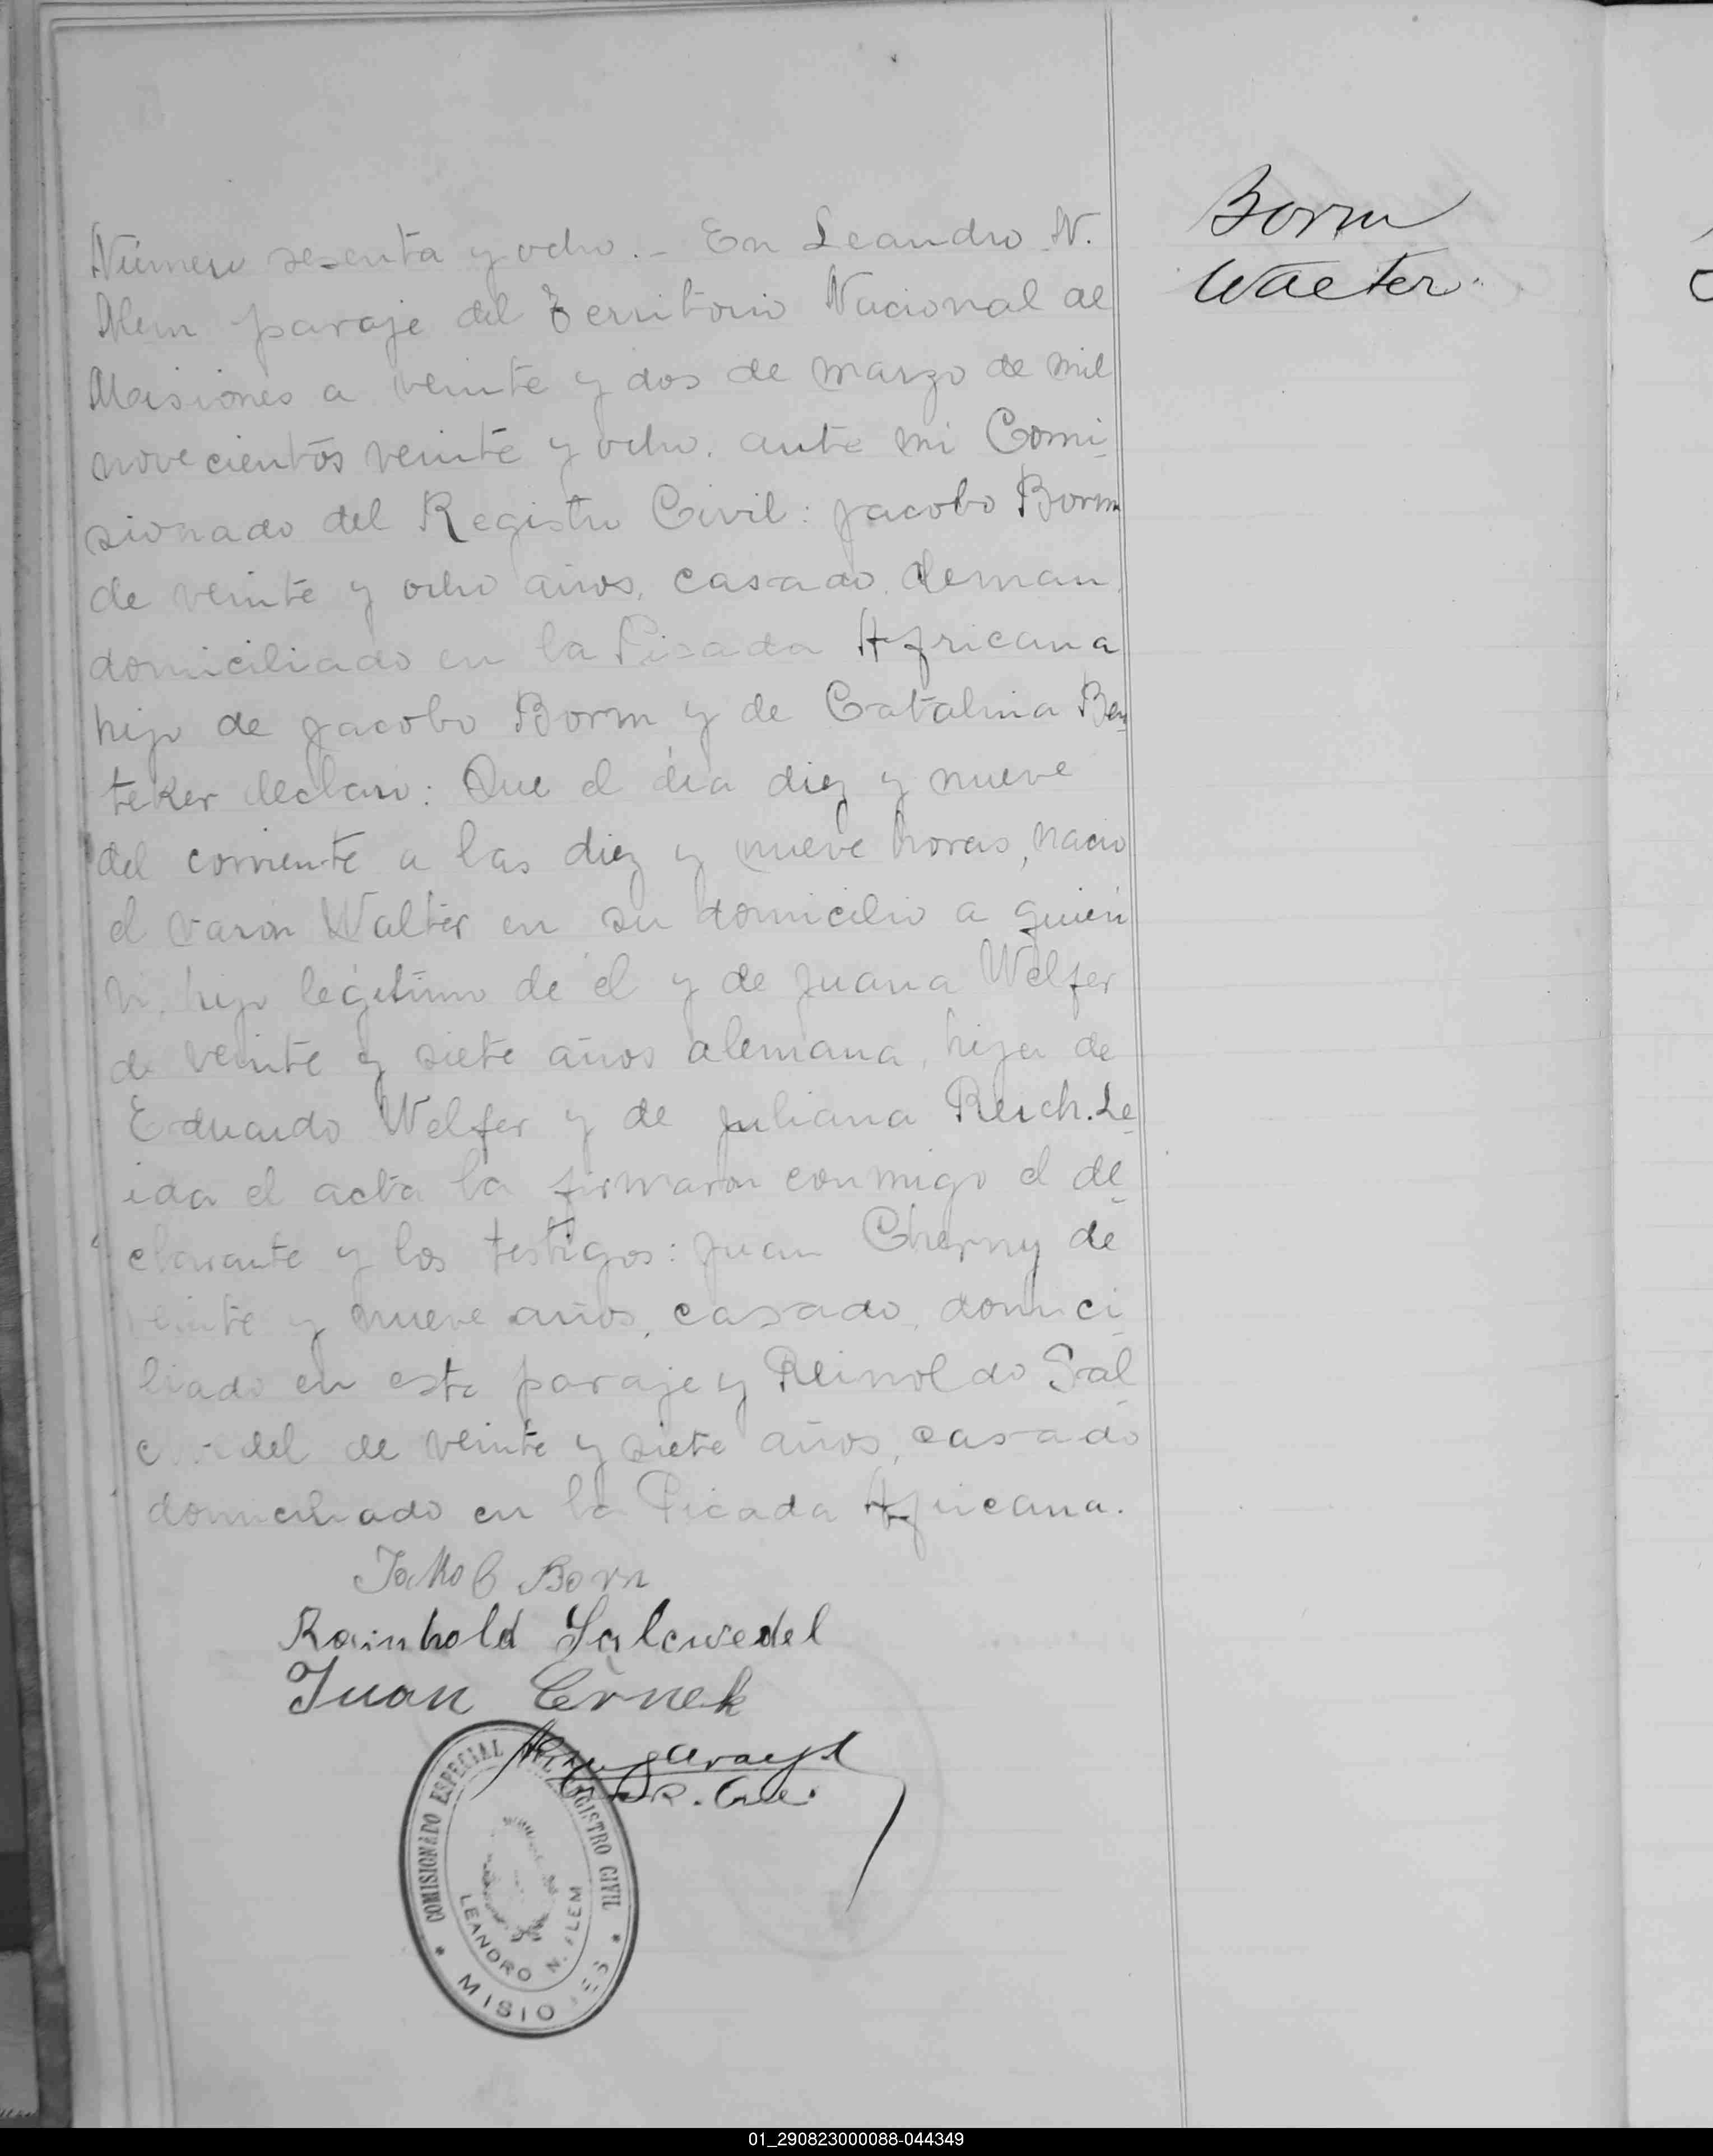 Borm
Walter.
Número sesenta y ocho. - En Leandro N.
Alem paraje del Territorio Nacional de
Misiones a veinte y dos de marzo de mil
novecientos veinte y ocho. ante mi Comi-
sionado del Registro Civil: Jacobo Borm
de veinte y ocho años, casado, Aleman,
domiciliado en la Picada Africana
hijo de Jacobo Borm y de Catalina
teker declaro: Que el día diez y nueve
del corriente a las diez y nueve horas, nacio
el varon Walter en su domicilio a quien
vi, hijo legitimo de él y de Juana Welfer
de veinte y siete años alemana, hija de
Eduardo Welfer y de Juliana Reich. Le-
ida el acta la firmaron conmigo el de-
clarante y los testigos: Juan Cherny de
veinte y nueve años, casado, domici-
liado en este paraje y Reinoldo Sal-
de veinte y siete años, casado
domiciliado en la Picada Africana.
Jakob Born
Rainhold Salcwedel
Juan
COMISIONADO ESPECIAL DEL REGISTRO CIVIL
LEANDRO N. ALEM
* MISIONES *
01_290823000088-044349